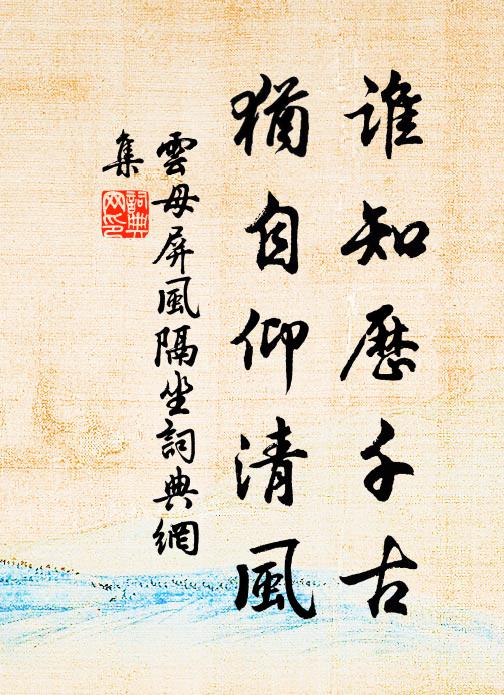 谁知歷千古
猶自仰清風
雲母屏風隔坐詞典網
集
詞典
网印